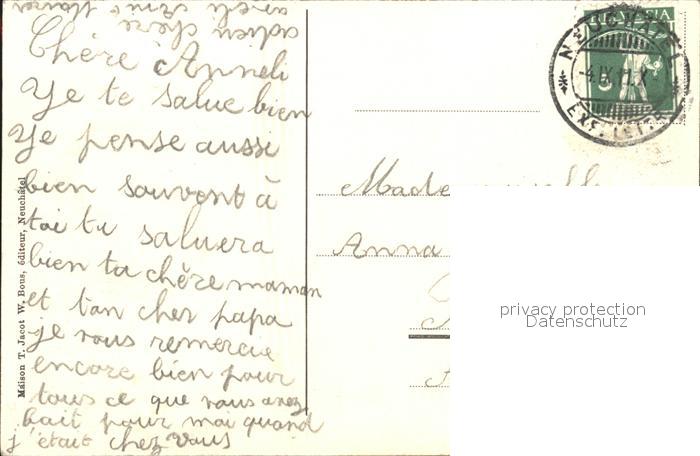 Chère Anneli
Je te salue bien
Je pense aussi
bien souvent à
toi tu saluera
bien ta chère maman
et ton cher papa
je vous remercie
encore bien pour
tous ce que vous avez
fait pour moi quand
j'était chez vous
adieu chère
Maison T. Jacot W. Bous, éditeur, Neuchâtel
HELVETIA
NEUCHATEL
-4.IX.11.X
EXP. LET.
Made
Anna
privacy protection
Datenschutz